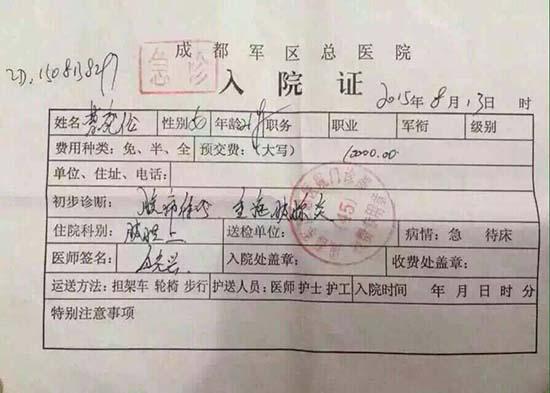 成都军区总医院
ZD:150813829
急诊
入院证
2015年8月13日 时
姓名 性别女 年龄 职务 职业 军衔 级别
费用种类：免、半、全 预交费：（大写） 10000.00
单位、住址、电话：
初步诊断： 腹痛待诊 重症胰腺炎
住院科别： 送检单位： 病情：急 待床
医师签名： 入院处盖章： 收费处盖章：
运送方法：担架车 轮椅 步行 护送人员：医师 护士 护工 入院时间 年 月 日 时 分
特别注意事项